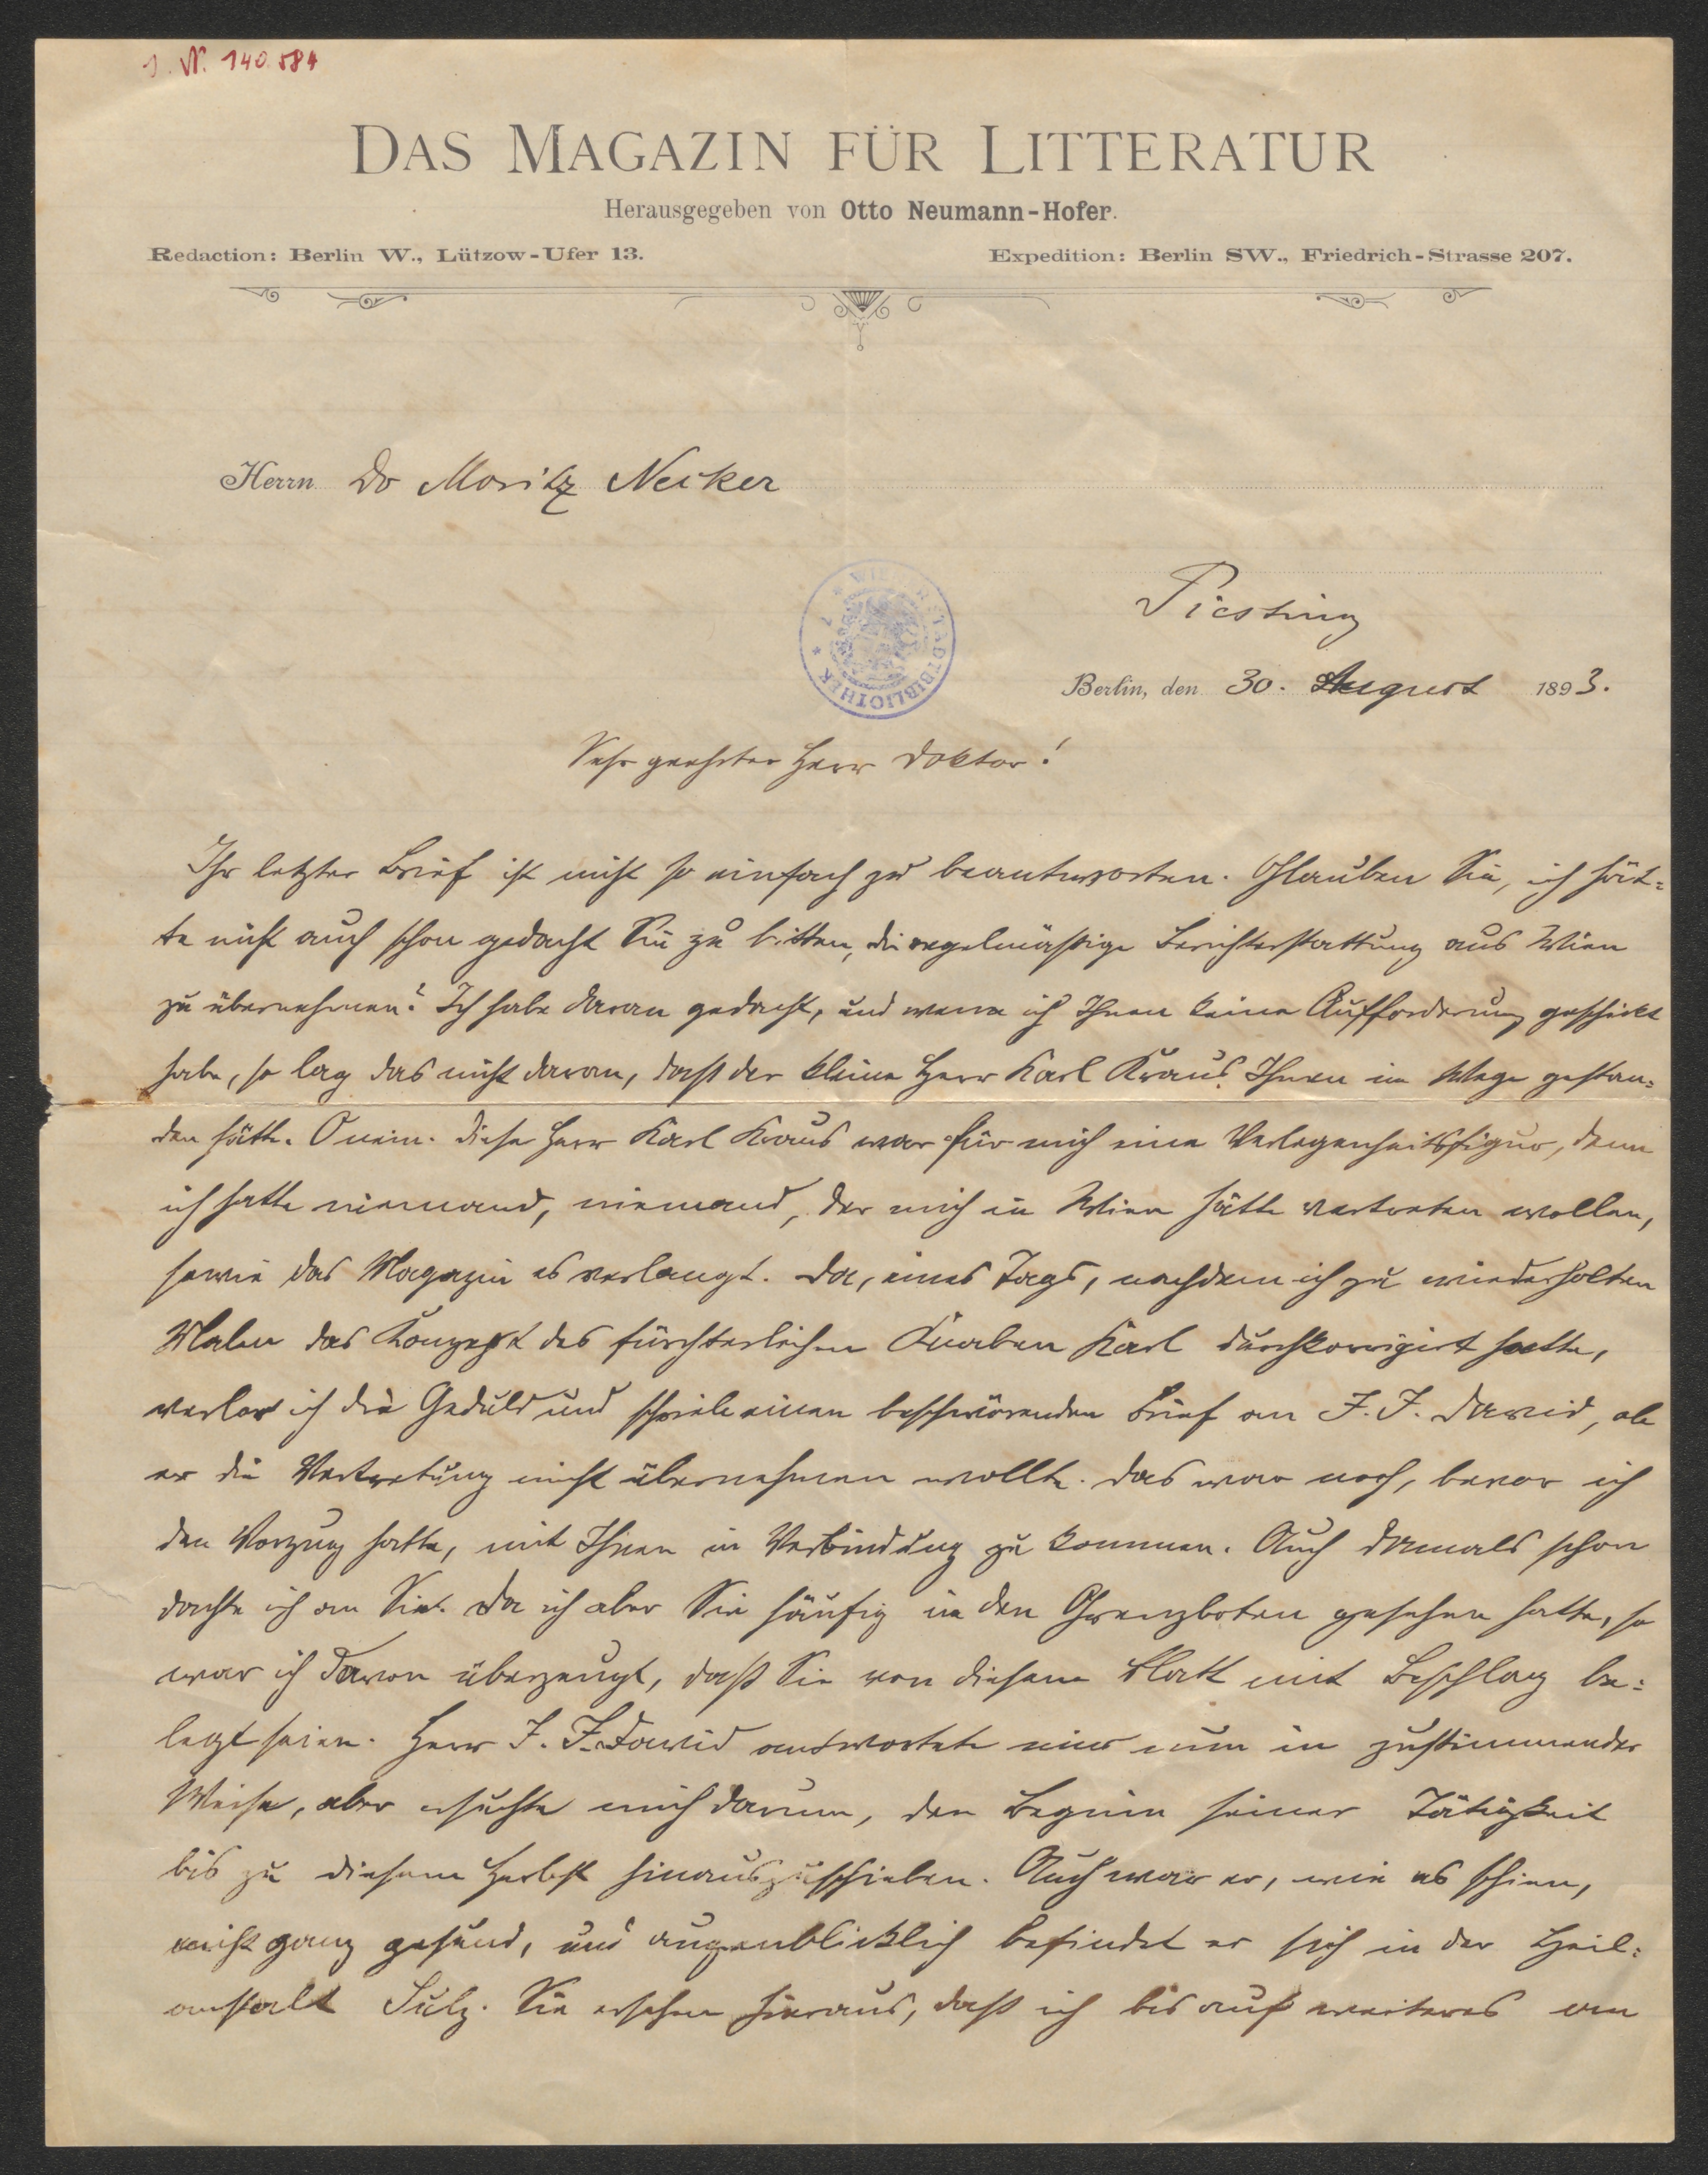 J. N. 140.584
DAS MAGAZIN FÜR LITTERATUR
Herausgegeben von Otto Neumann-Hofer.
Redaction: Berlin W., Lützow-Ufer 13.
Expedition: Berlin SW., Friedrich-Strasse 207.
Herrn Dr Moritz Necker
WIENER STADTBIBLIOTHEK
Piesting
Berlin, den 30. August 1893.
Sehr geehrter Herr Doktor!
Ihr letzter Brief ist nicht so einfach zu beantworten. Glauben Sie, ich hät=
te nicht auch schon gedacht Sie zu bitten, die regelmäßige Berichterstattung aus Wien
zu übernehmen? Ich habe daran gedacht, und wenn ich Ihnen keine Aufforderung geschickt
habe, so lag das nicht daran, daß der kleine Herr Karl Kraus Ihnen im Wege gestan=
den hätte. O nein. Dieser Herr Karl Kraus war für mich eine Verlegenheitsfigur, denn
ich hatte niemand, niemand, der mich in Wien hätte vertreten wollen,
sowie das Magazin es verlangt. Da, eines Tags, nachdem ich zu wiederholten
Malen das Konzept des fürchterlichen Knaben Karl durchkorrigirt hatte,
verlor ich die Geduld und schrieb einen beschwörenden Brief an J. J. David, ob
er die Vertretung nicht übernehmen wollte. Das war noch, bevor ich
den Vorzug hatte, mit Ihnen in Verbindung zu kommen. Auch damals schon
dachte ich an Sie. Da ich aber Sie häufig in den Grenzboten gesehen hatte, so
war ich davon überzeugt, daß Sie von diesem Blatt mit Beschlag be=
legt seien. Herr J. J. David antwortete mir nun in zustimmender
Weise, aber ersuchte mich darum, den Beginn seiner Tätigkeit
bis zu diesem Herbst hinauszuschieben. Auch war er, wie es schien,
nicht ganz gesund, und augenblicklich befindet er sich in der Heil=
anstalt Sulz. Sie ersehen hieraus, daß ich bis auf weiteres an